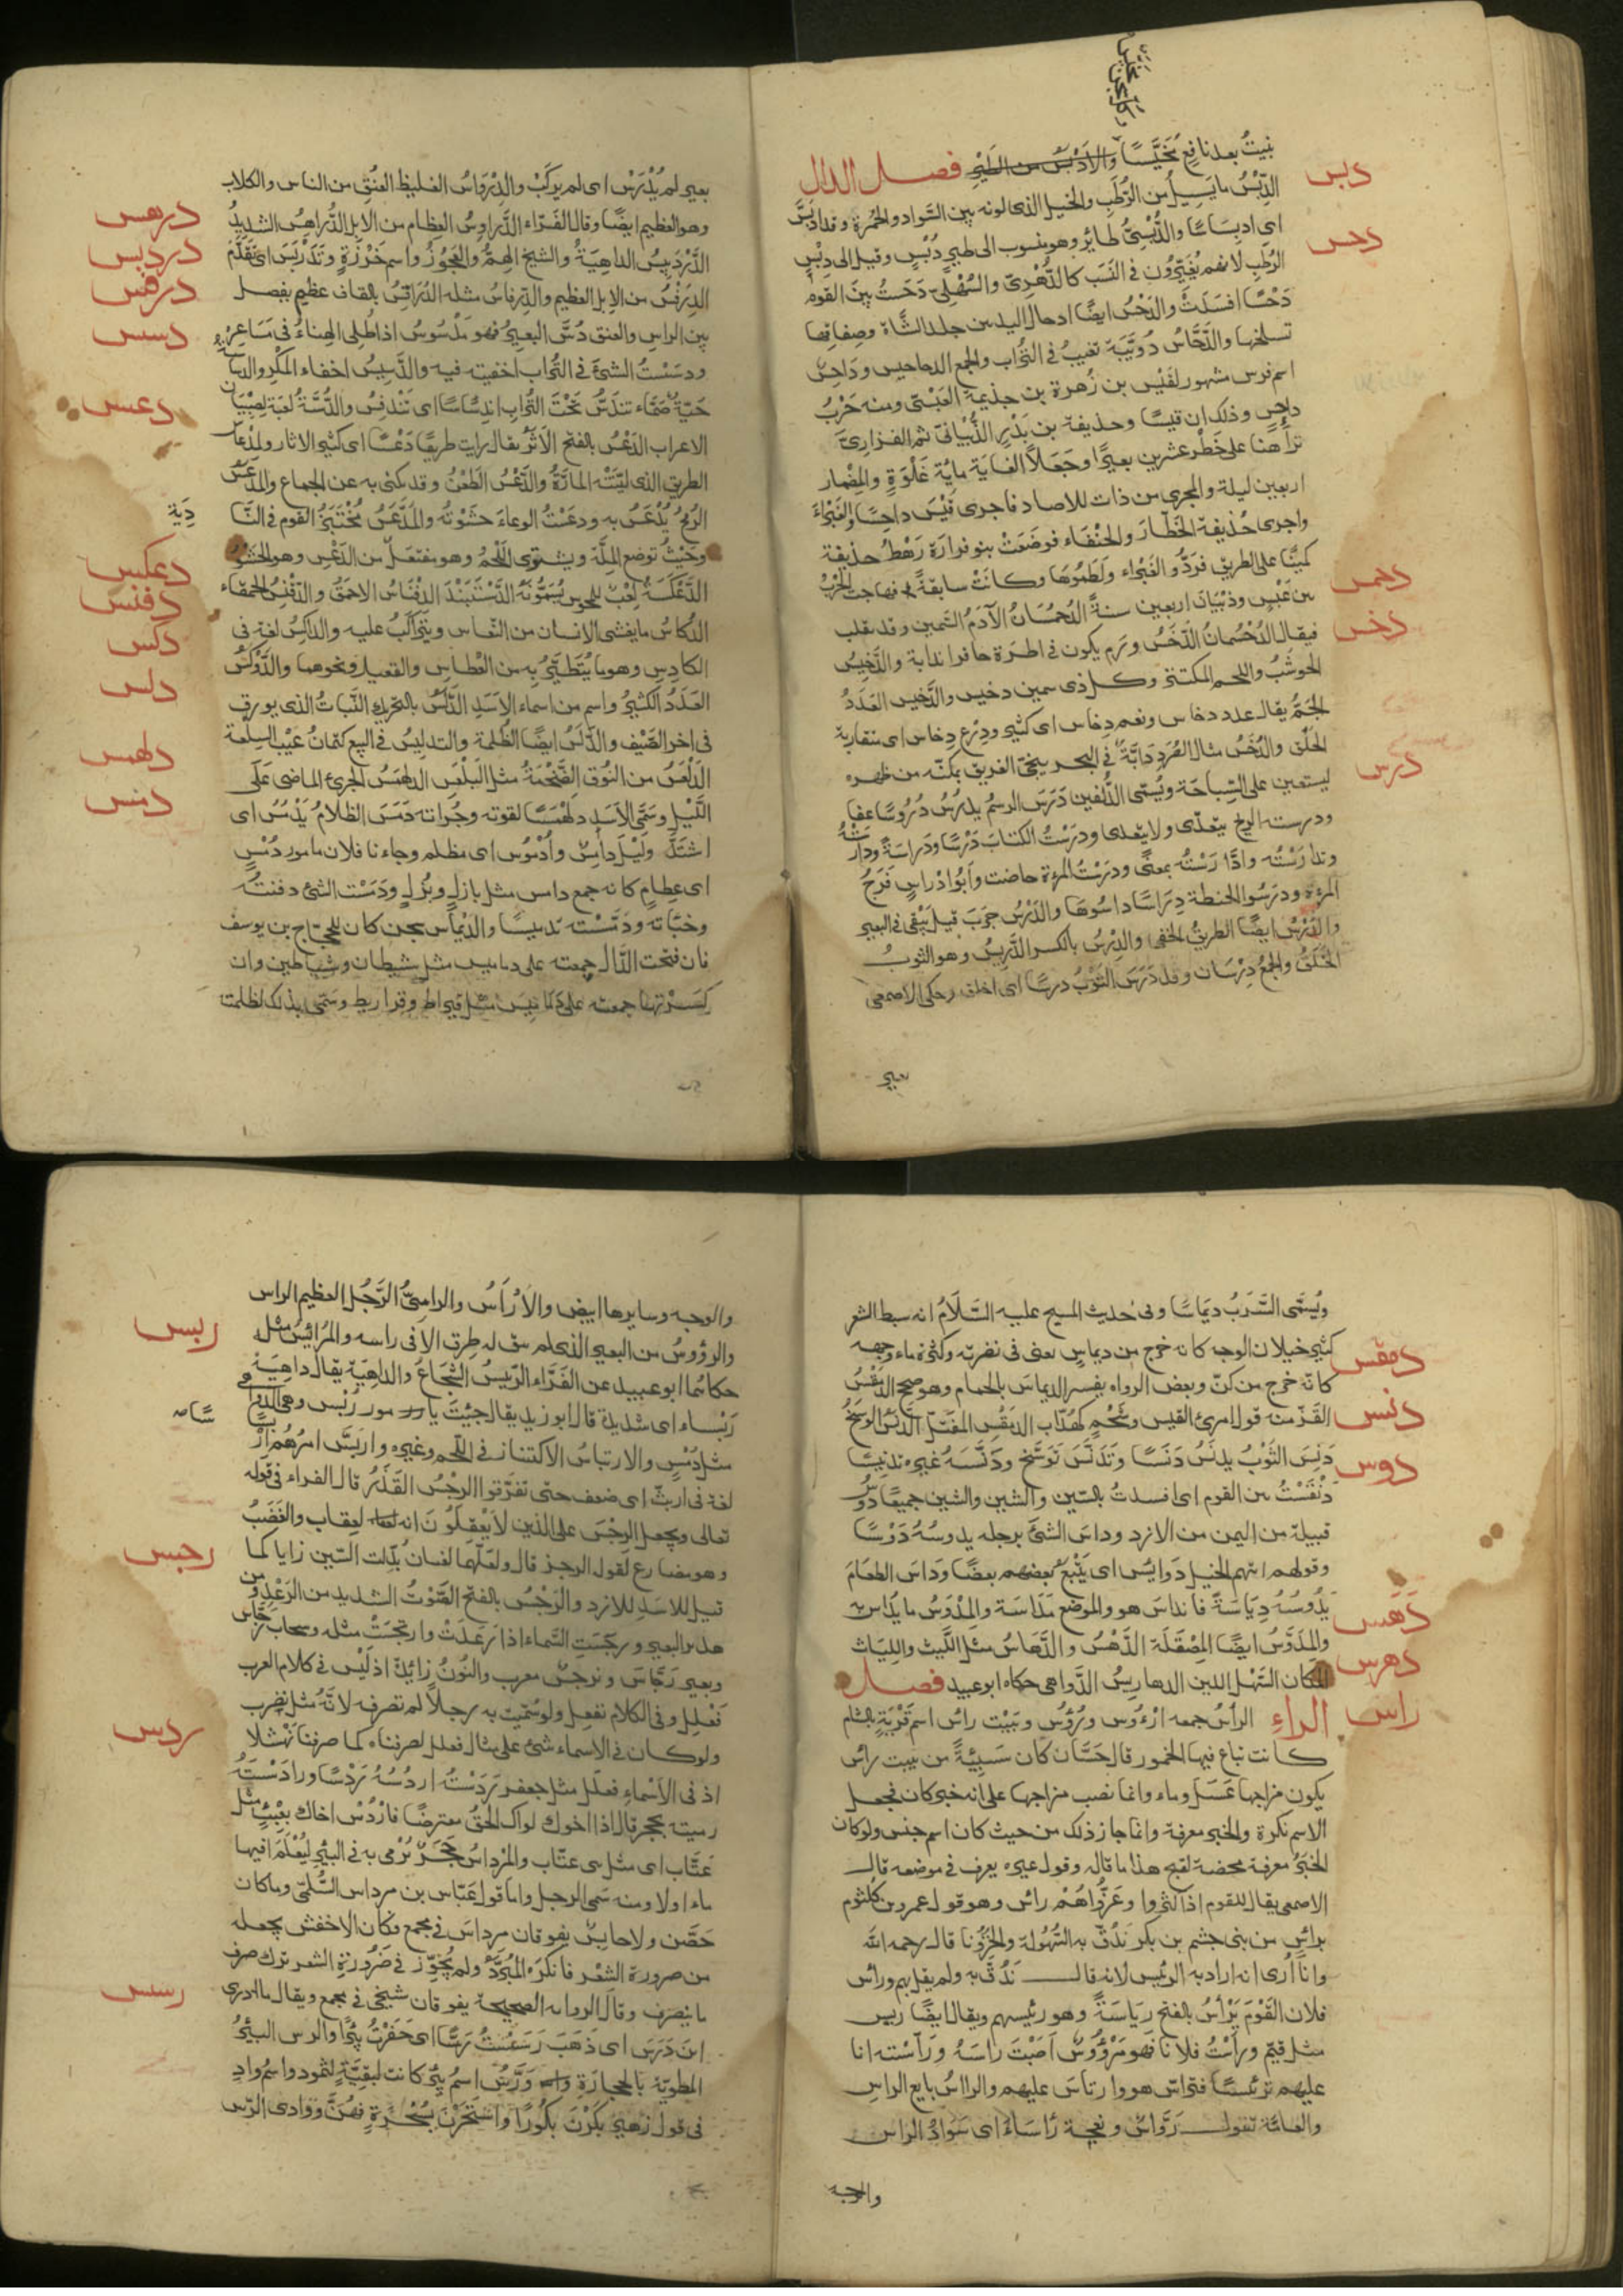 وكل آنجن مخيس
بنيتُ بعد نافع مُخَيَّسًا والأدبس من الطير فصل الدال
دبس
الدِّبْسُ ما يَسِيلُ من الرُّطَبِ والخيل الذى لونه بين السَّواد والحُمرة وقد ادبسَّ
اى ادبِسَاسًا والدُّبْسِىُّ طائرٌ وهو منسوب الى طيرٍ دُبْسٍ وقيل الى دِبْسِ
دحس
الرُّطَبِ لانهم يُغَيِّرُون فى النَّسَب كالدُّهْرِىّ والسُّهْلِىّ دَحَسْتُ بين القوم
دَحْسًا افسَدتُ والدَحْسُ ايضًا ادخال اليد بين جلد الشَّاة وصِفاقها
تسلخها والدَّحَّاسُ دُوَيْبَّة تغيبُ فى التُّراب والجمع الدحاحيس ودَاحِسٌ
اسم فرس مشهور لقَيْس بن زُهرة بن جذيمةَ العَبْسِّى ومنه حَرْبُ
داحسٍ وذلك ان قيسًا وحذيفة بن بَدْرٍ الذُّبْيانىَّ ثم الفزارىَّ
تراهنا على خَطَر عشرين بعيرًا وجَعَلاَ الغاية مائةَ غَلْوَةٍ والمِضْمار
اربعين ليلة والمجرى من ذات للاصاد فاجرى قَيْسٌ داحِسًا والغَبْراءَ
واجرى حُذيفة الخَطَّارَ والحَنْفَاء فوضَعَتْ بنو فزارَة رَهْطُ حذيفة
كمينًا على الطريق فرَدُّوا الغَبْراء ولَطَمُوهَا وكانَتْ سابقةً فهاجت الحَرْبُ
دحمس
بين عَبْسٍ وذبْيَانَ اربعين سنةً الدُحْمُسَانُ الآدَمُ السَّمين وقد يقلب
دخس
فيقال الدُحْسُمانُ الدَّخَسُ وَرَم يكون فى اطرة حافر الدابة والدَّخِيسُ
الحَوشَبُ واللحم المكتنز وكل ذى سمين دخيس والدَّخيس العَدَدُ
الجَمُّ يقال عدد دخاس ونعم دِخاس اى كثير ودِرْع دِخاس اى متقاربة
درس
الحَلَق والدُّخَسُ مثال الصُّرَدِ دَابَّةٌ فى البحر ينجى الغريق يمكنّه من ظهره
ليستعين على السِّباحَة ويُسمّى الدُّلفين دَرَسَ الرسمُ يدرُسُ دُرُوسًا عفا
ودرسته الريح يتعدّى ولا يتعدى ودرَسْتُ الكتابَ دَرْسًا ودِرَاسةً ودارَسْتُهُ
وتدارَسْتُه وادَّارَسْتُه بمعنًى ودرسَتْ المرءة حاضت وابُوا ادْراسٍ فَرجُ
المرءة ودرسُوا الحنطة دِرَاسًا داسُوهَا والدَّرْسُ جَرَبَ قيل يَبْقى فى البعير
والدَّرْسُ ايضًا الطريقُ الخفى والدِرْسُ بالكسر الدَّرِيسُ وهو الثوبُ
الخَلَقُ والجمعُ دِرْسَان وقد دَرَسَ الثَوْبُ درسًا اى اخلق وحكى الاصمعى
بعير
بعيرٍ لم يُدْرَسْ اى لم يركَبْ والدِّرْوَاسُ الغليظ العُنُقِ من الناس والكلاب
درهس
وهو العظيم ايضًا وقال الفَرّاء الدَّراوِسُ العِظام من الابل الدُّراهِسُ الشديدُ
دردبس
الدَّرْدَبِيسُ الداهِيَةُ والشيخ الهِمُّ والعَجُوزُ واسم خَرْزَةٍ وتَدَرْبَسَ اى تَقَدَّمَ
درفس
الدِّرَفْسُ من الابل العظيم والدِّرفاسُ مثله الدُرَاقِسُ بالقاف عظيم يفصل
دسس
بين الراس والعنق دُسَّ البعيرُ فهو مَدْسُوسٌ اذا طُلِى الهِناءُ فى مَسَاعِرِهِ
ودسَسْتُ الشئَ فى التُّراب اخفيته فيه والدَّسِيسُ اخفاء المَكْرِ والدساسُ
حَيّةٌ صَمَّاء تندَسُّ تَحْتَ التُّرابِ اندِسَاسًا اى تَنْدَفِنُ والدُّسَّةُ لعبَة لِصِبْيَان
دعس
الاعراب الدَّعْسُ بالفتح الاثَرُ يقال رايت طريقًا دَعْسًا اى كثير الاثار والمِدْعَاسُ
الطريق الذى ليَّنَتْه المارّةُ والدَّعْسُ الطَعْنُ وقد يكنى به عن الجماع والمِدْعَسُ
الرُمحُ يُدْعَسُ به ودعَسْتُ الوِعاءَ حَشَوْتُه والمُدَّعَسُ مُخْتَبَزُ القوم فى البا
دِيَةِ
وحَيْثُ توضع المَلّة ويشتوى اللّحْمُ وهو مفتعَلٌ من الدَعْسِ وهو الحَشْوُ
دعكس
الدَّعْكَسَةُ لعِبْ للمجوس يُسَمُّونَهُ الدَّسْتَبَنْدَ الدِفْنَاسُ الاحمقُ والدِفْنِسُ الحَمْقَاء
دفنس
دكس
الدُكَاسُ ما يغشى الانسان من النُعَاس ويتراكَبُ عليه والداكِسُ لغة فى
الكادِسِ وهو ما يُتَطَيَّرُ به من العُطَاسِ والقعيد ونحوهما والدَّوْكَسُ
دلس
العَدَدُ الكَثِيرُ واسم من اسماء الاسَدِ الدَّلَسُ بالتحريك النَّباتُ الذى يورق
فى اخر الصَّيْف والدَّلَسُ ايضًا الظُلمة والتدلِيسُ فى البيع كتمانُ عَيْب السِلْعَة
دلهمس
الدَلْعَسُ من النُوق الضَّخْمَةُ مثل البَلْعَس الدلهمَسُ الجرئُ الماضى عَلَى
دمس
اللَّيْلِ وسُمِّى الاسَدُ دلَهْمَسًا لقوته وجُراته دَمَسَ الظلامُ يَدْمُسُ اى
اشتَدَّ وليْلٌ دامِسٌ وأُدْمُوسٌ اى مظلم وجاءنا فلان بامور دُمْسٍ
اى عِظامٍ كانه جمع دامس مثل بازلٍ وبُزْلٍ ودَمَسْت الشئ دفنتُه
وخَبّاته ودَمَّسْته تَدميسًا والدَيْماس سجن كان للحجّاج بن يوسف
فان فتحت الدَّال جمعته على دياميس مثل شيطان وشياطين وان
كسَرْتها جمعته على دَمَامِيسَ مثل قيراط وقراريط وسُمّى بذلك لظلمته
ويُسَمَّى السَّرَبُ ديمَاسًا وفى حديث المسيح عليه السَّلاَمُ انه سبط الشعر
كثير خيلان الوجه كانه خرج من ديماسٍ يعنى فى نضرته وكثرة ماء وجهه
دمقس
كانّه خرج من كِنّ وبعض الرواه يفسر الديماسَ بالحمام وهو صحيح الدِّمَقْسُ
دنس
القَزّ منه قول امرئ القيس وشَحْمٍ كهُدّاب الدِّمَقْسِ المفتّل الدَّنَسُ الوسَخُ
دَنِسَ الثَوْبُ يدنَسُ دَنَسًا وتَدَنَّسَ تَوَسَّخ ودَنَّسَهُ غيره تدنيسًا
دوس
دَنْقَسْتُ بين القوم اى افسدتُ بالسّين والشين جميعًا دَوْسٌ
قبيلة من اليمن من الازد وداسَ الشئَ برجله يدوسُهُ دَوْسًا
وقولهم اتتهم الخيل دَوايسَ اى يَتْبَعُ بعضهم بعضًا ودَاسَ الطعَامَ
يدُوسُهُ دِيَاسَةً فانداسَ هو والموضع مَدَاسَة والمِدْوَسُ ما يُدَاس به
دهس
والمِدْوَسُ ايضًا المِصْقَلَة الدَّهْسُ والدَّهَاسُ مثل اللَّبْث واللِّبَاث
دهرس
المكان السَّهْل اللين الدهاريسُ الدَّواهى حكاه ابو عبيد فصل
راس
الراءِ الرأسُ جمعه ارْءُوس ورُؤُسٌ وبَيْت راسٍ اسم قَرْيَةٍ بالشام
كانت تباع فيها الخمور قال حَسَّان كان سَبِيئَةً من بيت رأس
يكون مزاجها عَسَل وماء وانما نصب مزاجها على انه خبر كان فجعل
الاسم نكرة والخبر معرفة وانما جاز ذلك من حيث كان اسم جنس ولو كان
الخبَرُ معرفة محضة لقبح هذا ما قاله وقول غيره يعرف فى موضعه قال
الاصمعى يقال للقوم اذا كثروا وعَزُّوا هُمْ رأس وهو قول عمرو بن كلثوم
برأسٍ من بنى جشم بن بكر نَدُقّ به السُّهُولة والحُزُونا قال رحمه الله
وانا أُرى انه اراد به الرئيس لانه قال نَدُقّ به ولم يقل بهم ورأس
فلان القَوْمَ يَرْأسُ بالفتح رِيَاسَةً وهو رئيسهم ويقال ايضًا ريس
مثل قيّم ورأسْتُ فلانا فهو مَرْؤُوسٌ اصَبْتَ راسَهُ ورَأّسْته انا
عليهم ترئيسًا فترأس هو وارتأسَ عليهم والرااسُ بايع الراس
والعامّة تقول رَوَّاسٌ ونعجة رَأسَاءُ اى سَوادُ الراس
والوجه
والوجه وسايرها ابيض والارْأَسُ والراسىُّ الرَّجُل العظيم الراس
والرؤوسُ من البعير الذى لم يبق له طِرق الا فى راسه والمُرائِسُ مثله
ربس
حكاهُما ابو عبيد عن الفَرَّاء الرَّبيسُ الشُجاعُ والداهيَةُ يقال داهِيَةٌ
رَبْسَاء اى شديدة قال ابو زيد يقال جِئتَ بامور رُبْسٍ وهى الدواهى
مثل دُمْسٍ والارتباسُ الاكتناز فى اللّحم وغيره واربَسَّ امرُهُم ارْبِسَاسًا
لغة فى اربَثَّ اى ضعف حتى تفَرّقوا الرِجْسُ القَذَرُ قال الفراء فى قوله
تعالى ويجعل الرِجْسَ على الذين لاَ يعْقِلُونَ انه العقاب والغَضَبُ
رجس
وهو مضارع لقول الرجز قال ولعلّهما لغتان بُدّلت السّين زايا كما
قيل للاسَدِ للازد والرَجْسُ بالفتح الصَّوْتُ الشديد من الرَّعْدِ ومن
هدير البعير ورجَسَتِ السَّماء اذا رَعَدَتْ وارتجَسَتْ مثله وسحاب رَجَّاسٌ
وبعير رَجَّاسَ ونرجسٌ معرب والنُونُ زائدة اذ لَيْس فى كلام العرب
فَعْلِل وفى الكلام نفعِل ولو سُمّيت به رجلاً لم تصرفه لانَّه مثل نضرب
ولو كان فى الاسماء شئ على مثال فعلل لصرفناه كما صرفنا نَهْشَلاً
ردس
اذ فى الاسْماءِ فعلَل مثل جعفر رَدَسْتُه اردُسُهُ رَدْسًا ورادَسْتَهُ
رميته بحجر قال اذا اخوك لواك الحقّ معترضًا فاردُسْ اخاك بعبْءٍ مثل
عَتَّاب اى مثل بنى عتَّاب والمِرْداسُ حَجَرٌ يُرْمى به فى البئر ليُعْلَمَ افيها
ماء اولا ومنه سُمى الرجل واما قول عبّاس بن مرداس السُّلَمى وما كان
حَصْن ولا حابِسٌ يفوقان مرداسَ فى مجمع فكان الاخفش يجعله
من ضرورة الشعْر فانكرَهُ المُبَرِّدُ ولم يُجَوّز فى ضَرُورَةِ الشعر ترك صرف
ما ينصرف وقال الرواية الصحيحة يفوقان شيخى فى مجمع ويقال ما ادرى
رسس
اينَ رَدَسَ اى ذهَبَ رَسَسْتُ رَسًّا اى حَفَرْتُ بِئرًا والرس البئرُ
المطويّة بالحجارَةِ وَرَسٌّ اسمُ بئرٍ كانت لبقيَّةٍ لثمود واسم وادٍ
فى قول زهير بكَرْنَ بكُورًا واستَحَرْنَ بسُحْرَةٍ فهُنَّ ووادى الرّس